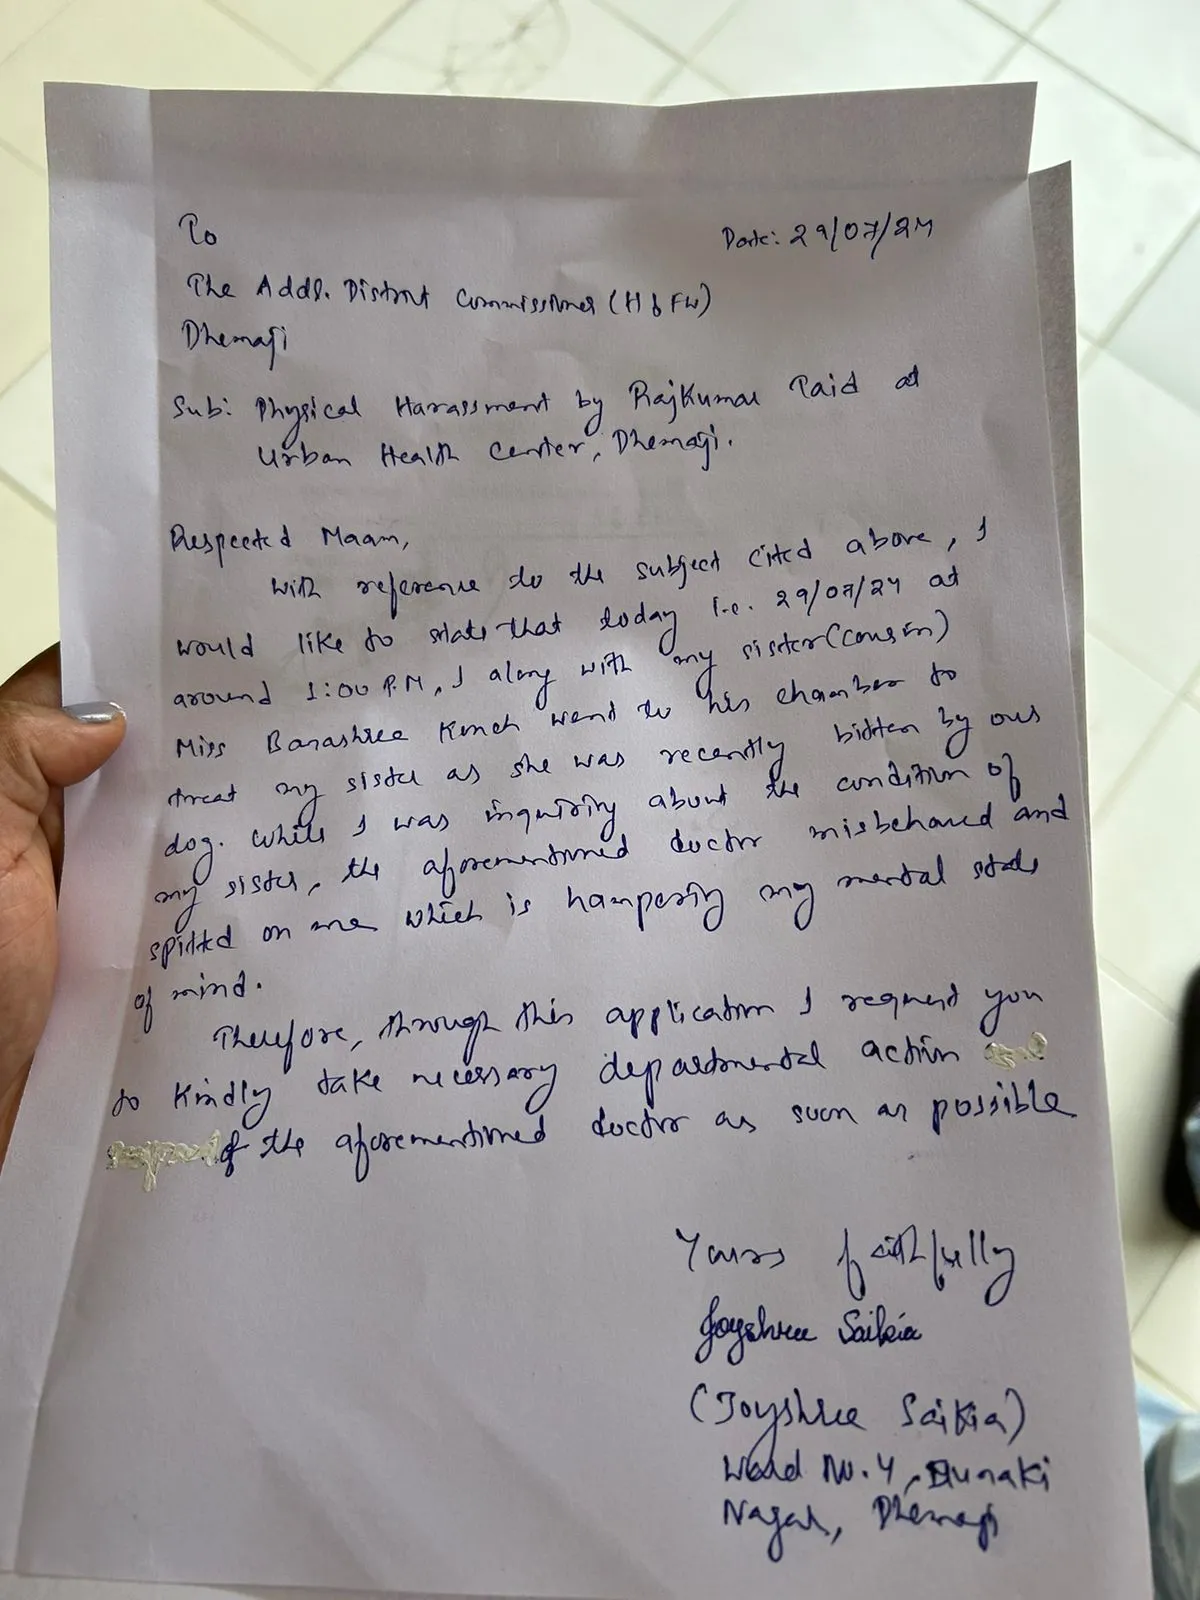 To
Date: 29/07/24
The Addl. District Commissioner (H & FW)
Dhemaji
Sub: Physical Harassment by RajKumar Taid at
Urban Health Center, Dhemaji.
Respected Maam,
With reference to the subject cited above, I
would like to state that today i.e. 29/07/24 at
around 1:00 P.M, I along with my sister (cousin)
Miss Banashree Konch went to his chamber to
treat my sister as she was recently bitten by our
dog. While I was inquiring about the condition of
my sister, the aforementioned doctor misbehaved and
spitted on me which is hampering my mental state
of mind.
Therefore, through this application I request you
to kindly take necessary departmental action
of the aforementioned doctor as soon as possible
Yours faithfully
Joyshree Saikia
(Joyshree Saikia)
Ward No. 4,
Nagar, Dhemaji